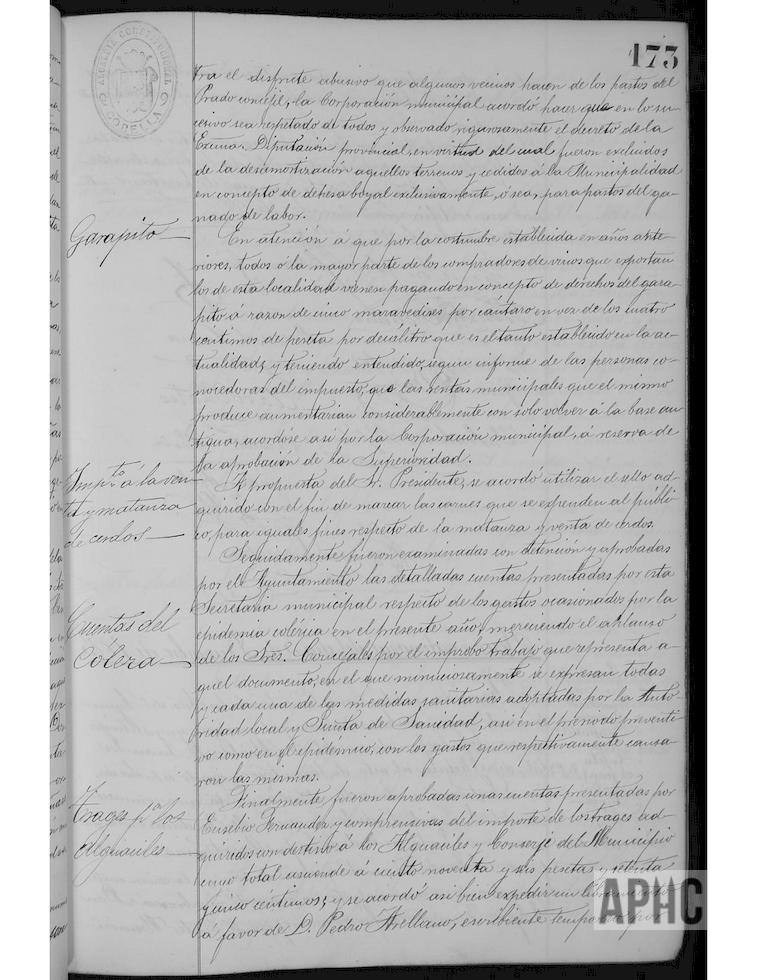 173
ALCALDIA CONSTITUCIONAL
CORELLA
tra el disfrute abusivo que algunos vecinos hacen de los pastos del
Prado concejil, la Corporación municipal acordó hacer que en lo su-
cesivo sea respetado de todos y observado rigurosamente el decreto de la
Excma. Diputación provincial, en virtud del cual fueron excluidos
de la desamortización aquellos terrenos y cedidos á la Municipalidad
en concepto de dehesa boyal exclusivamente, ó sea, para pastos del ga-
nado de labor.
Garapito
En atención á que por la costumbre establecida en años ante-
riores, todos ó la mayor parte de los compradores de vinos que exportan
los de esta localidad vienen pagando en concepto de derechos del gara-
pito á razon de cinco maravedises por cántaro en vez de los cuatro
céntimos de peseta por decálitro que es el tanto establecido en la ac-
tualidad; y teniendo entendido, segun informe de las personas co-
nocedoras del impuesto, que las rentas municipales que el mismo
produce aumentarian considerablemente con solo volver á la base an-
tigua, acordóse asi por la Corporación municipal, á reserva de
la aprobación de la Superioridad.
Impto á la ven-
ta y matanza
de cerdos
A propuesta del Sr. Presidente, se acordó utilizar el sello ad-
quirido con el fin de marcar las carnes que se expenden al públi-
co, para iguales fines respecto de la matanza y venta de cerdos.
Cuentas del
cólera
Seguidamente fueron examinadas con detención y aprobadas
por el Ayuntamiento las detalladas cuentas presentadas por esta
Secretaria municipal respecto de los gastos ocasionados por la
epidemia colérica en el presente año, mereciendo el aplauso
de los Sres. Concejales por el improbo trabajo que representa a-
quel documento, en el que miniciosamente se expresan todas
y cada una de las medidas sanitarias adoptadas por la Auto-
ridad local y Junta de Sanidad, asi en el periodo preventi-
vo como en el epidemico, con los gastos que respectivamente causa-
ron las mismas.
Trages pa los
alguaciles
Finalmente fueron aprobadas unas cuentas presentadas por
Eusebio Fernandez y comprensivas del importe de los trages ad-
quiridos con destino á los Alguaciles y Conserje del Municipio
cuyo total asciende á ciento noventa y seis pesetas y setenta
y cinco céntimos; y se acordó asi bien expedir un libramiento
á favor de D. Pedro Arellano, escribiente temporero por
APHC